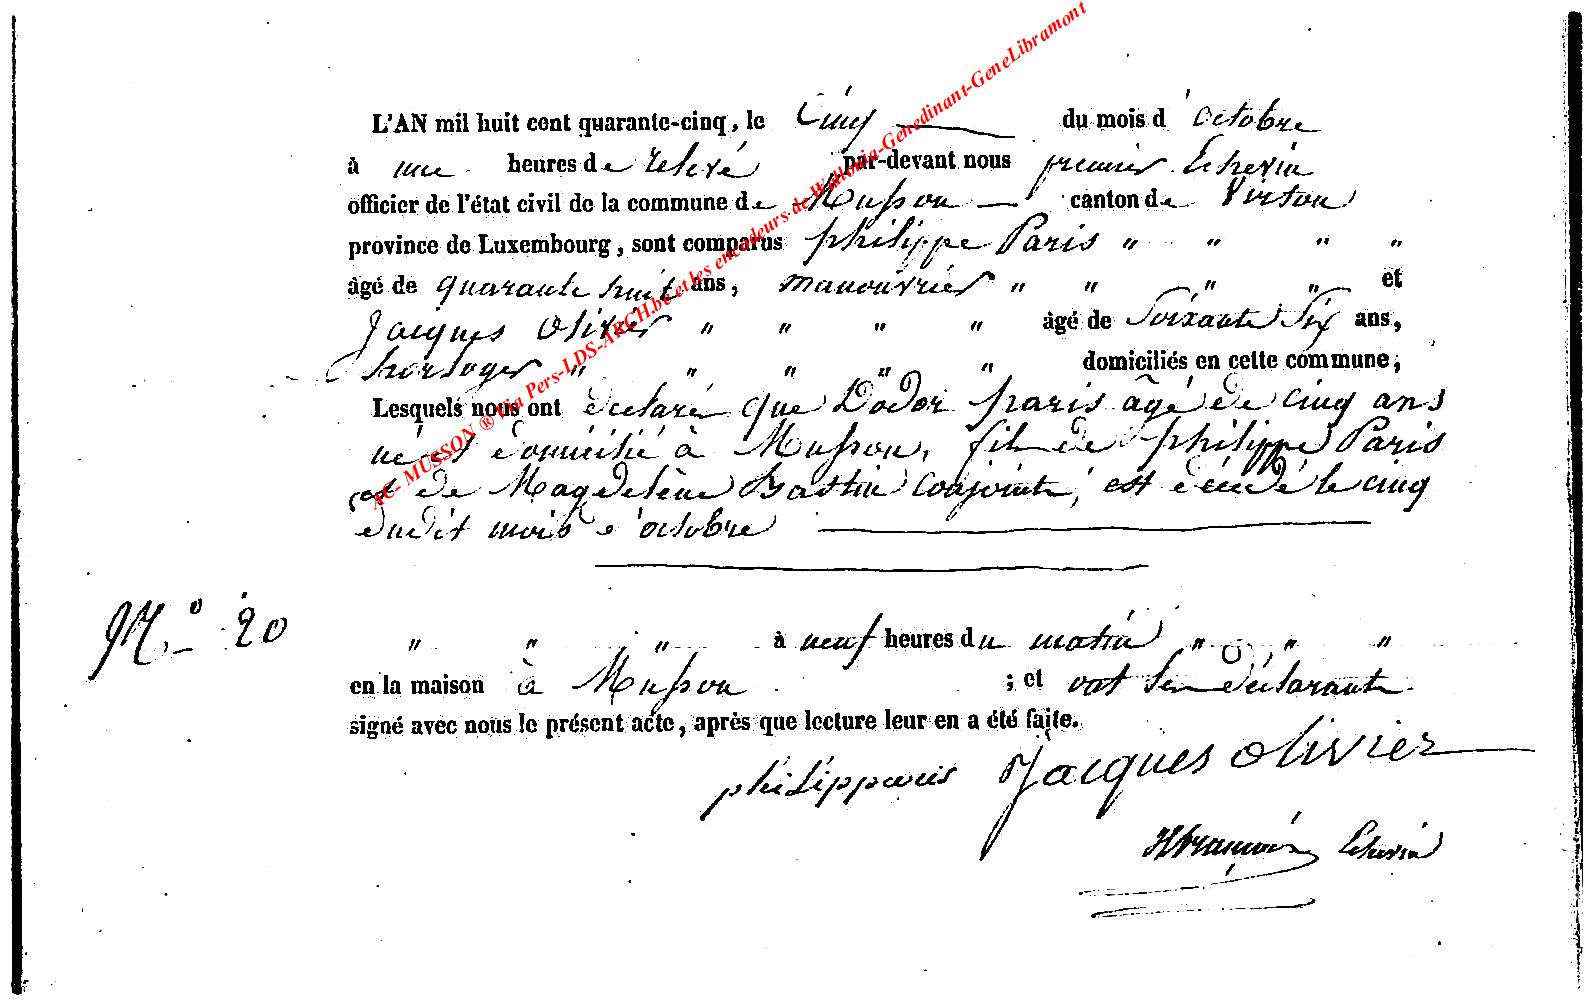 L'AN mil huit cent quarante-cinq, le Cinq du mois d'octobre
à une heures de relevé par-devant nous premier Echevin
officier de l'état civil de la commune de Musson canton de Virton
province de Luxembourg, sont comparus philippe Paris " " " "
âgé de quarante huit ans, manouvrier " " " " et
Jacques Olivier " " " " âgé de Soixante Six ans,
horloger " " " " " domiciliés en cette commune;
Lesquels nous ont déclaré que Dodor paris âgé de cinq ans
né et domicilié à Musson, fils de philippe Paris
et de Magdelène Bastin conjoints, est décédé le cinq
dudit mois d'octobre
N.o 20
" " " à neuf heures du matin " " "
en la maison à Musson ; et ont les déclarants
signé avec nous le présent acte, après que lecture leur en a été faite.
philipparis Jacques olivier
Echevin
AC- MUSSON ® Via Pers-LDS-ARCH.be et les encodeurs de Wallonia-Genedinant-GeneLibramont